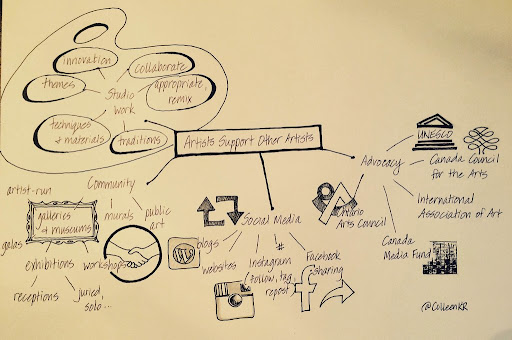 innovation
collaborate
themes
Studio
Work
appropriate,
remix
techniques
& materials
traditions
Artists Support Other Artists
UNESCO
Advocacy
Canada Council
for the Arts
International
Association of Art
Canada
Media Fund
Ontario
Arts Council
Community
artist-run
galleries
& museums
murals
public
art
galas
exhibitions
workshops
receptions
juried,
solo...
Social Media
blogs
W
websites
Instagram
(follow, tag,
repost)
#
Facebook
sharing
f
@ColleenKR